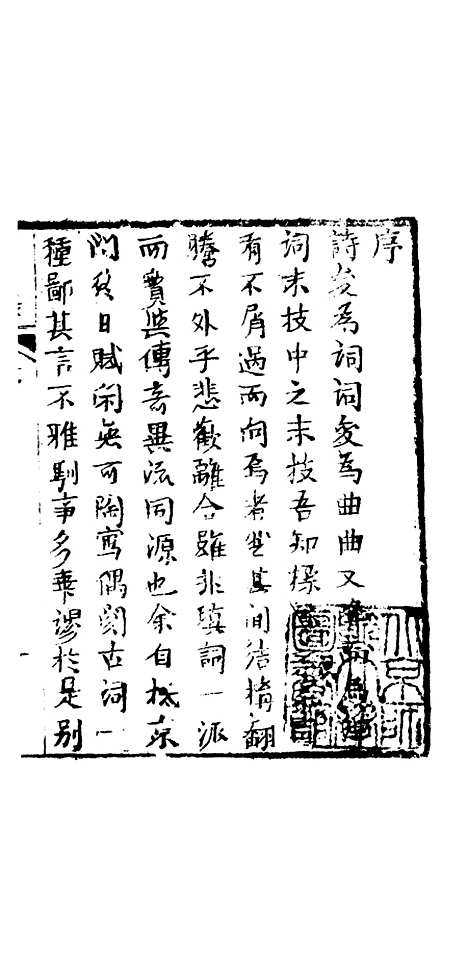 序
詩変為詞詞変為曲曲又降而為弾
詞末技中之末技吾知操
有不屑過而問焉者然其間結構翻
騰不外乎悲歡離合雖非填詞一派
而實與傳奇異流同源也余自抵京
門終日賦閑無可陶寫偶閱古詞一
種鄙其言不雅馴事多舛謬於是別